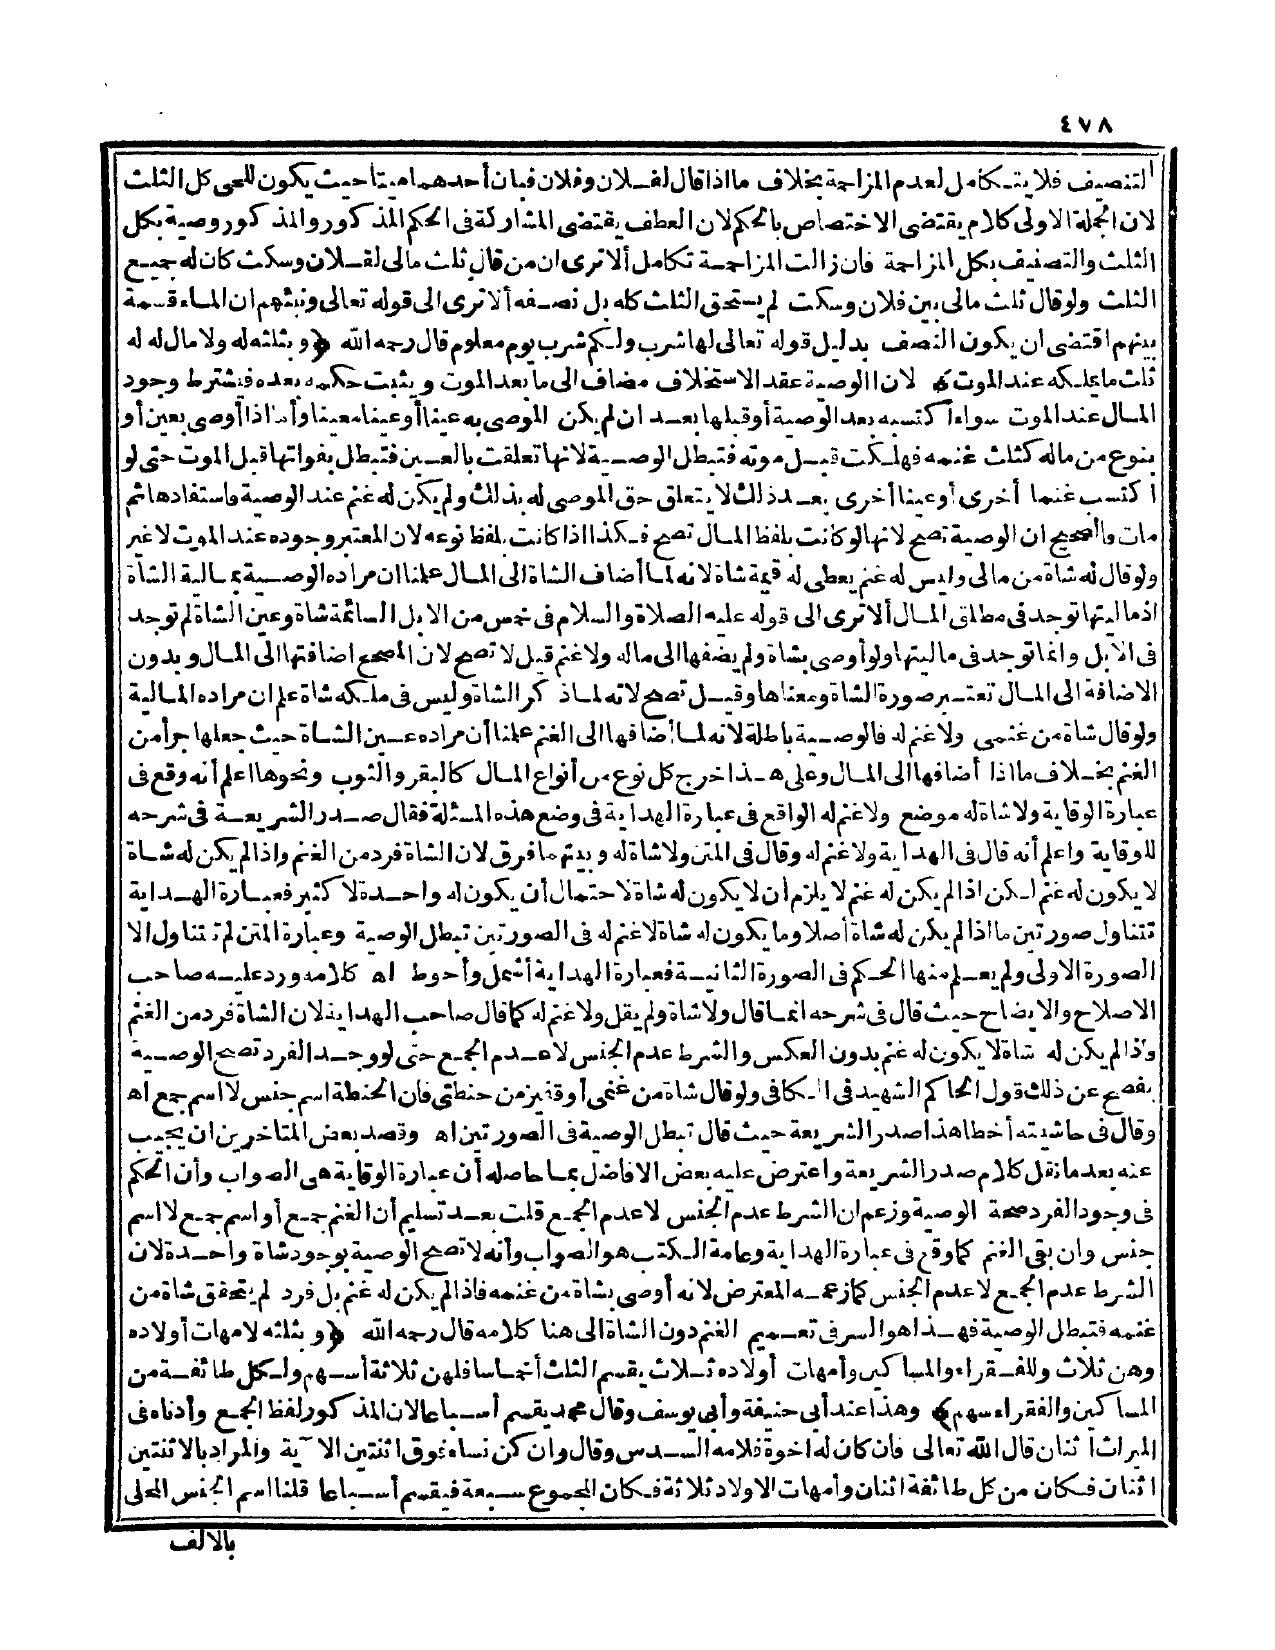 ٤٧٨
التنصيف فلا يتكامل لعدم المزاحمة بخلاف ما اذا قال لفلان وفلان فبان أحدهما ميتا حيث يكون للحى كل الثلث
لان الجملة الاولى كلام يقتضى الاختصاص بالحكم لان العطف يقتضى المشاركة فى الحكم المذكور والمذكور وصية بكل
الثلث والتصنيف بكل المزاحمة فان زالت المزاحمة تكامل ألا ترى ان من قال ثلث مالى لفلان وسكت كان له جميع
الثلث ولو قال ثلث مالى بين فلان وسكت لم يستحق الثلث كله بل نصفه ألا ترى الى قوله تعالى ونبئهم ان الماء قسمة
بينهم اقتضى ان يكون النصف بدليل قوله تعالى لها شرب ولكم شرب يوم معلوم قال رحمه الله ﴿وبثلثه له ولا مال له له
ثلث ما يملكه عند الموت﴾ لان الوصية عقد الاستخلاف مضاف الى ما بعد الموت ويثبت حكمه بعده فيشترط وجود
المال عند الموت سواء اكتسبه بعد الوصية أو قبلها بعد ان لم يكن الموصى به عينا أو عينا معينا وأما اذا أوصى بعين أو
بنوع من ماله كثلث غنمه فهلكت قبل موته فتبطل الوصية لانها تعلقت بالعين فتبطل بفواتها قبل الموت حتى لو
اكتسب غنما أخرى أو عينا أخرى بعد ذلك لا يتعلق حق الموصى له بذلك ولم يكن له غنم عند الوصية فاستفادها ثم
مات والصحيح ان الوصية تصح لانها لو كانت بلفظ المال تصح فكذا اذا كانت بلفظ نوعه لان المعتبر وجوده عند الموت لا غير
ولو قال له شاة من مالى وليس له غنم يعطى له قيمة شاة لانه لما أضاف الشاة الى المال علمنا ان مراده الوصية بمالية الشاة
اذ ماليتها توجد فى مطلق المال ألا ترى الى قوله عليه الصلاة والسلام فى خمس من الابل السائمة شاة وعين الشاة لم توجد
فى الابل وانما توجد فى ماليتها ولو أوصى بشاة ولم يضفها الى ماله ولا غنم قيل لا تصح لان المصحح اضافتها الى المال وبدون
الاضافة الى المال تعتبر صورة الشاة ومعناها وقيل تصح لانه لما ذكر الشاة وليس فى ملكه شاة علم ان مراده المالية
ولو قال شاة من غنمى ولا غنم له فالوصية باطلة لانه لما أضافها الى الغنم علمنا أن مراده عين الشاة حيث جعلها جزأ من
الغنم بخلاف ما اذا أضافها الى المال وعلى هذا خرج كل نوع من أنواع المال كالبقر والثوب ونحوها اعلم أنه وقع فى
عبارة الوقاية ولا شاة له موضع ولا غنم له الواقع فى عبارة الهداية فى وضع هذه المسئلة فقال صدر الشريعة فى شرحه
للوقاية واعلم أنه قال فى الهداية ولا غنم له وقال فى المتن ولا شاة له وبينهما فرق لان الشاة فرد من الغنم واذا لم يكن له شاة
لا يكون له غنم لكن اذا لم يكن له غنم لا يلزم أن لا يكون له شاة لاحتمال أن يكون له واحدة لا كثير فعبارة الهداية
تتناول صورتين ما اذا لم يكن له شاة أصلا وما يكون له شاة لا غنم له فى الصورتين تبطل الوصية وعبارة المتن لم تتناول الا
الصورة الاولى ولم يعلم منها الحكم فى الصورة الثانية فعبارة الهداية أشمل وأحوط اه كلامه ورد عليه صاحب
الاصلاح والايضاح حيث قال فى شرحه انما قال ولا شاة ولم يقل ولا غنم له كما قال صاحب الهداية لان الشاة فرد من الغنم
واذا لم يكن له شاة لا يكون له غنم بدون العكس والشرط عدم الجنس لا عدم الجمع حتى لو وجد الفرد تصح الوصية
يفصح عن ذلك قول الحاكم الشهيد فى الكافى ولو قال شاة من غنمى أو قفيز من حنطتى فان الحنطة اسم جنس لا اسم جمع اه
وقال فى حاشيته أخطأ هذا صدر الشريعة حيث قال تبطل الوصية فى الصورتين اه وقصد بعض المتاخرين ان يجيب
عنه بعد ما نقل كلام صدر الشريعة واعترض عليه بعض الافاضل بما حاصله أن عبارة الوقاية هى الصواب وأن الحكم
فى وجود الفرد صحة الوصية وزعم ان الشرط عدم الجنس لا عدم الجمع قلت بعد تسليم أن الغنم جمع أو اسم جمع لا اسم
جنس وان بقى الغنم كما وقع فى عبارة الهداية وعامة الكتب هو الصواب وأنه لا تصح الوصية بوجود شاة واحدة لان
الشرط عدم الجمع لا عدم الجنس كما زعمه المعترض لانه أوصى بشاة من غنمه فاذا لم يكن له غنم بل فرد لم يتحقق شاة من
غنمه فتبطل الوصية فهذا هو السر فى تعميم الغنم دون الشاة الى هنا كلامه قال رحمه الله ﴿وبثلثه لامهات أولاده
وهن ثلاث وللفقراء والمساكين وأمهات أولاده ثلاث يقسم الثلث أخماسا فلهن ثلاثة أسهم ولكل طائفة من
المساكين والفقراء سهم﴾ وهذا عند أبى حنيفة وأبى يوسف وقال محمد يقسم أسباعا لان المذكور لفظ الجمع وأدناه فى
الميراث اثنان قال الله تعالى فان كان له اخوة فلامه السدس وقال وان كن نساء فوق اثنتين الآية والمراد بالاثنتين
اثنان فكان من كل طائفة اثنان وأمهات الاولاد ثلاثة فكان المجموع سبعة فيقسم أسباعا قلنا اسم الجنس المحلى
بالالف